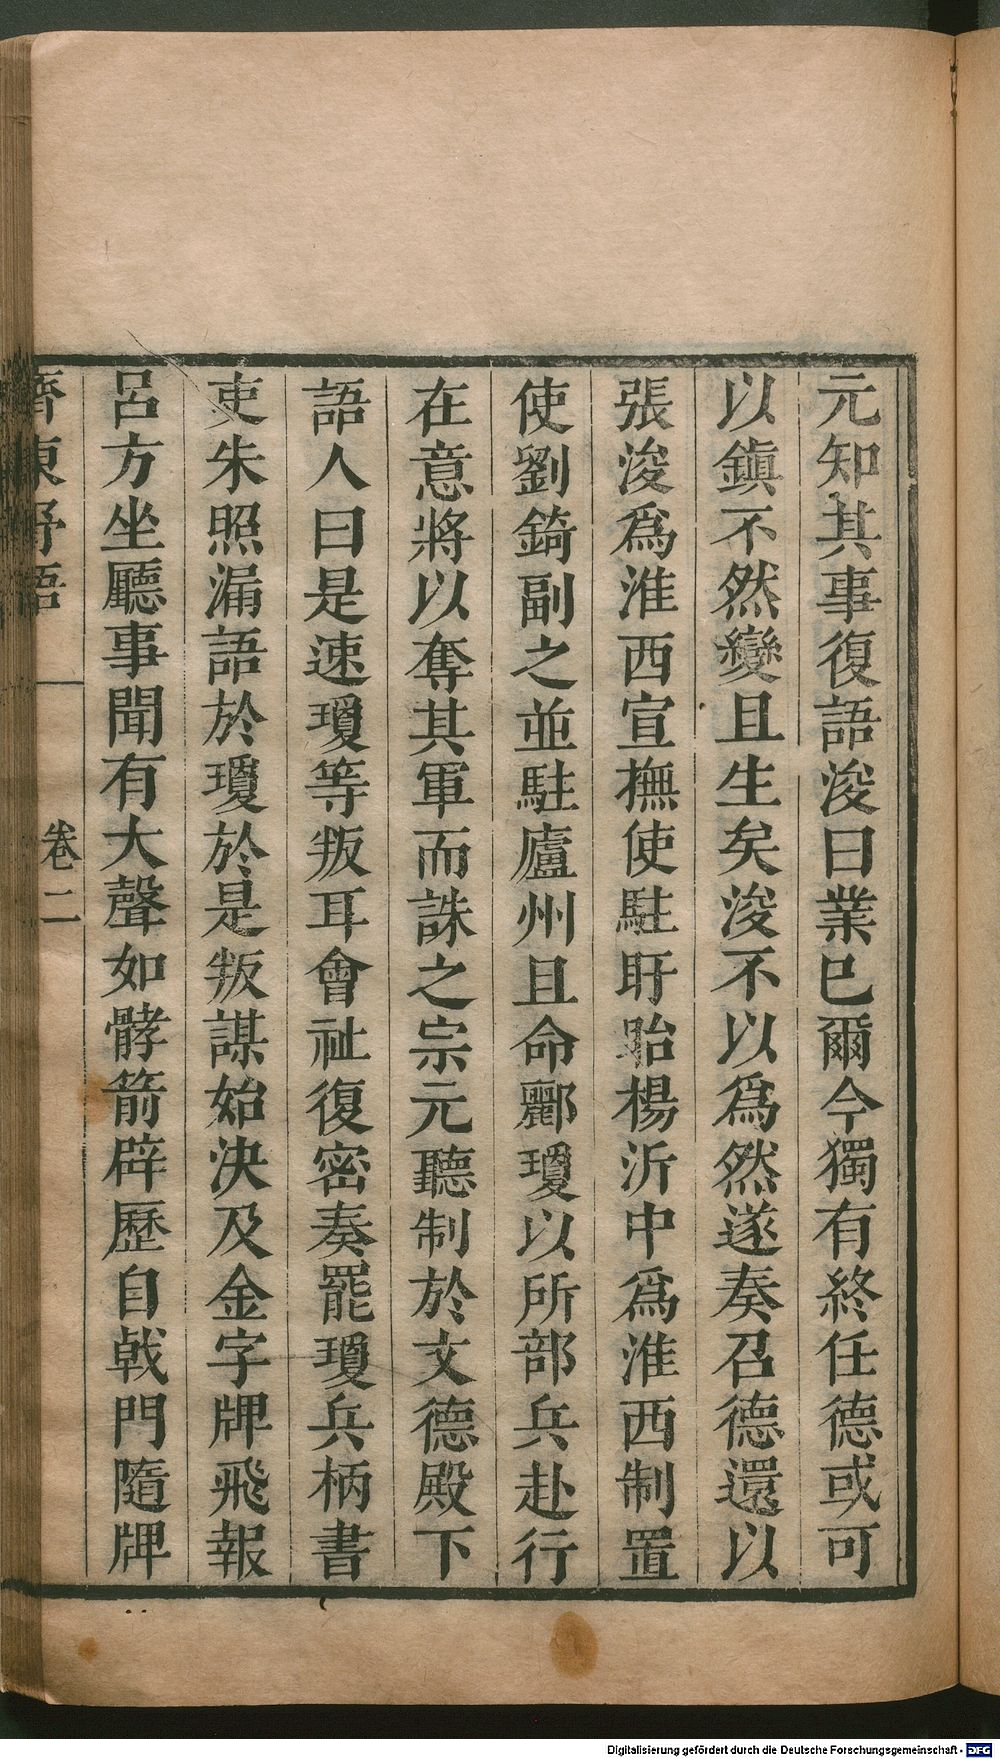 元知其事復語浚曰業已爾今獨有終任德或可
以鎮不然變且生矣浚不以爲然遂奏召德還以
張浚爲淮西宣撫使駐盱眙楊沂中爲淮西制置
使劉錡副之並駐廬州且命酈瓊以所部兵赴行
在意將以奪其軍而誅之宗元聽制於文德殿下
語人曰是速瓊等叛耳會祉復密奏罷瓊兵柄書
吏朱照漏語於瓊於是叛謀始決及金字牌飛報
呂方坐廳事聞有大聲如髇箭辟歷自戟門隨牌
齊東野語 卷二
Digitalisierung gefördert durch die Deutsche Forschungsgemeinschaft - DFG